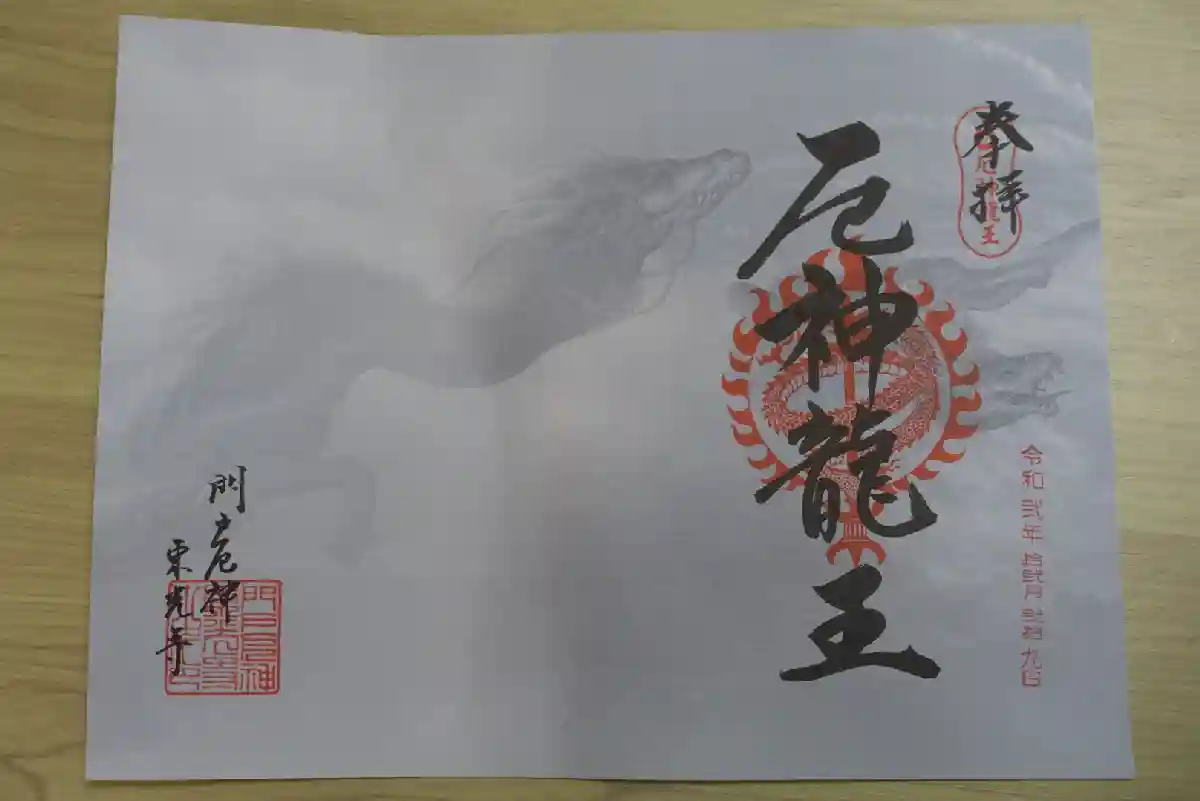 奉拝
厄神龍王
令和弐年拾弐月弐拾九日
厄神龍王
門戸厄神
東光寺